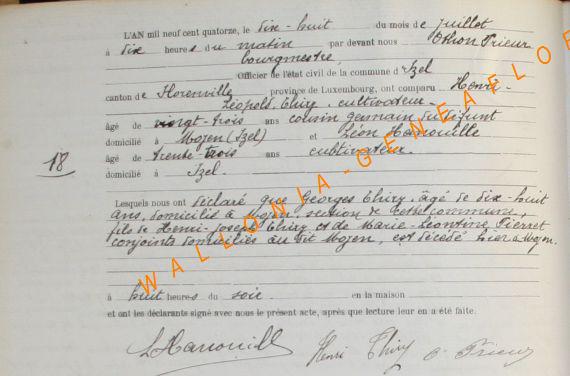 L'AN mil neuf cent quatorze, le dix-huit du mois de juillet
à dix heures du matin par devant nous Othon Prieur
bourgmestre,
Officier de l'état civil de la commune d'Izel
canton de Florenville province de Luxembourg, ont comparu Henri-
Léopold Thiry, cultivateur
âgé de vingt-trois ans cousin germain du défunt
domicilié à Moyen (Izel) et Léon Hanouille
âgé de trente-trois ans cultivateur.
domicilié à Izel.
18
Lesquels nous ont déclaré que Georges Thiry, âgé de dix-huit
ans, domicilié à Moyen, section de cette commune,
fils de Henri-Joseph Thiry et de Marie-Léontine Pierret
conjoints domiciliés au dit Moyen, est décédé hier à Moyen.
à huit heures du soir en la maison
et ont les déclarants signé avec nous le présent acte, après que lecture leur en a été faite.
L Hanouille Henri Thiry O. Prieur
WALLONIA-GENEALO